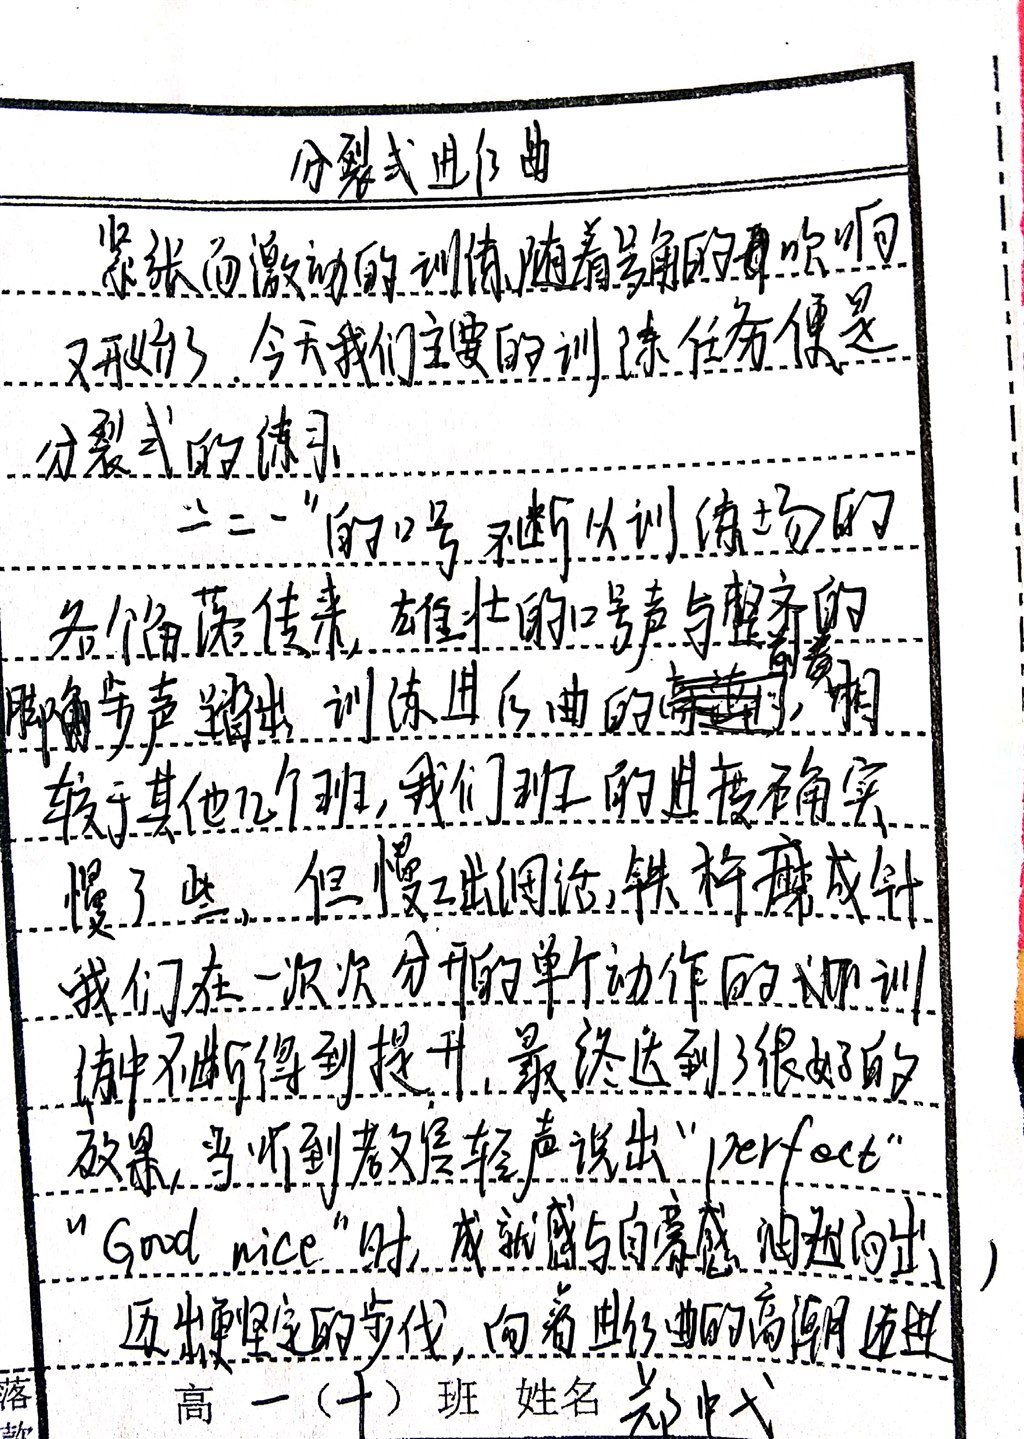 分裂式进行曲
紧张而激动的训练,随着号角的吹响
又开始了.今天我们主要的训练任务便是
分裂式的练习.
"一二一"的口号不断从训练场的
各个角落传来,雄壮的口号声与整齐的
前奏
脚步声踏出训练进行曲的,相
较于其他几个班,我们班的进度确实
慢了些,但慢工出细活,铁杵磨成针
我们在一次次分开的单个动作的训
练中不断得到提升,最终达到了很好的
效果,当听到教官轻声说出"perfect"
"Good nice"时,成就感与自豪感油然而出,
迈出更坚定的步伐,向着进行曲的高潮迈进
落款
高一(十)班 姓名 郑中弋